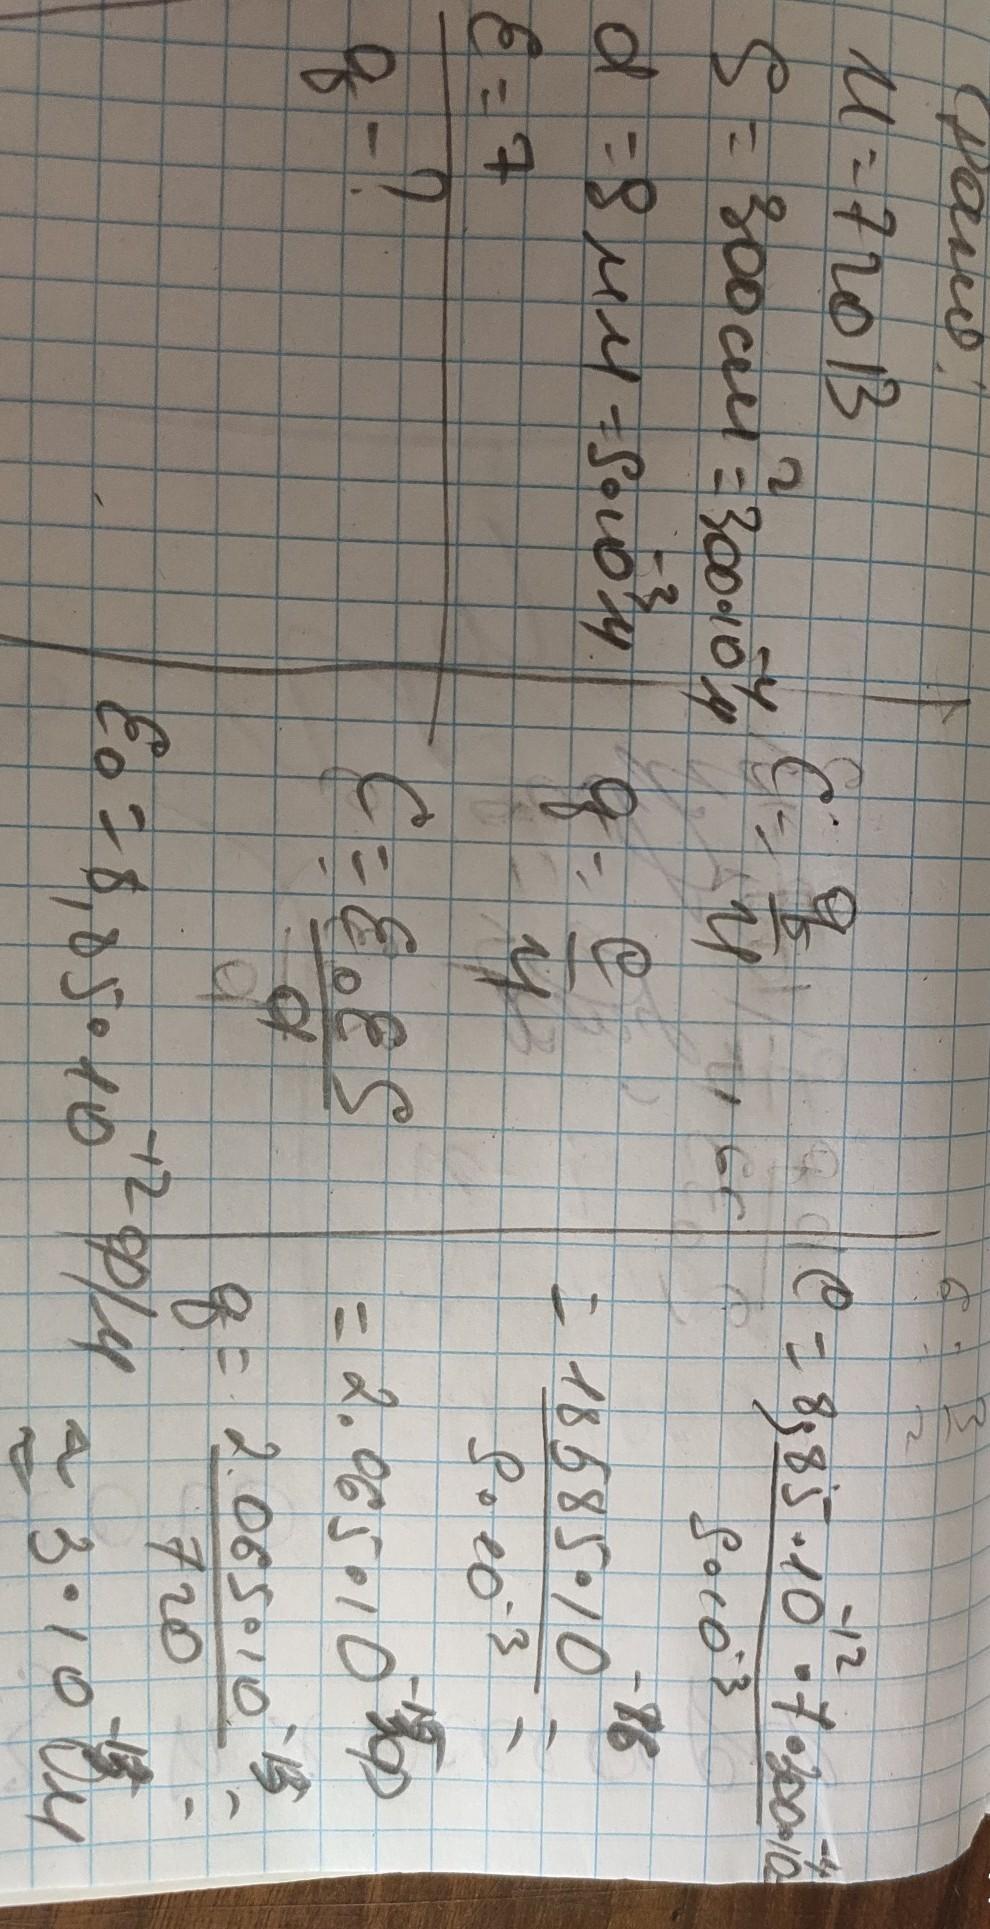 Дано:
U = 720 В
S = 300 см² = 300·10⁻⁴ м
d = 9 мм = 9·10⁻³ м
ε = 7
q - ?
C = q/U
q = C/U
C = ε₀εS/d
ε₀ = 8,85·10⁻¹² Ф/м
C = 8,85·10⁻¹²·7·300·10⁻⁴/9·10⁻³
= 18585·10⁻¹⁶/9·10⁻³ =
= 2.065·10
q = 2.065·10⁻¹³/720 =
≈ 3·10